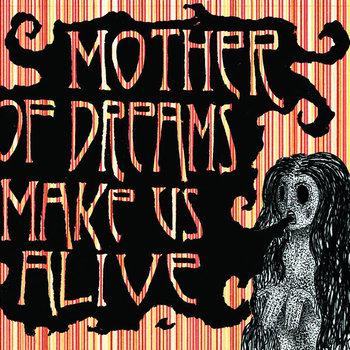 MOTHER
OF DREAMS
MAKE US
ALIVE